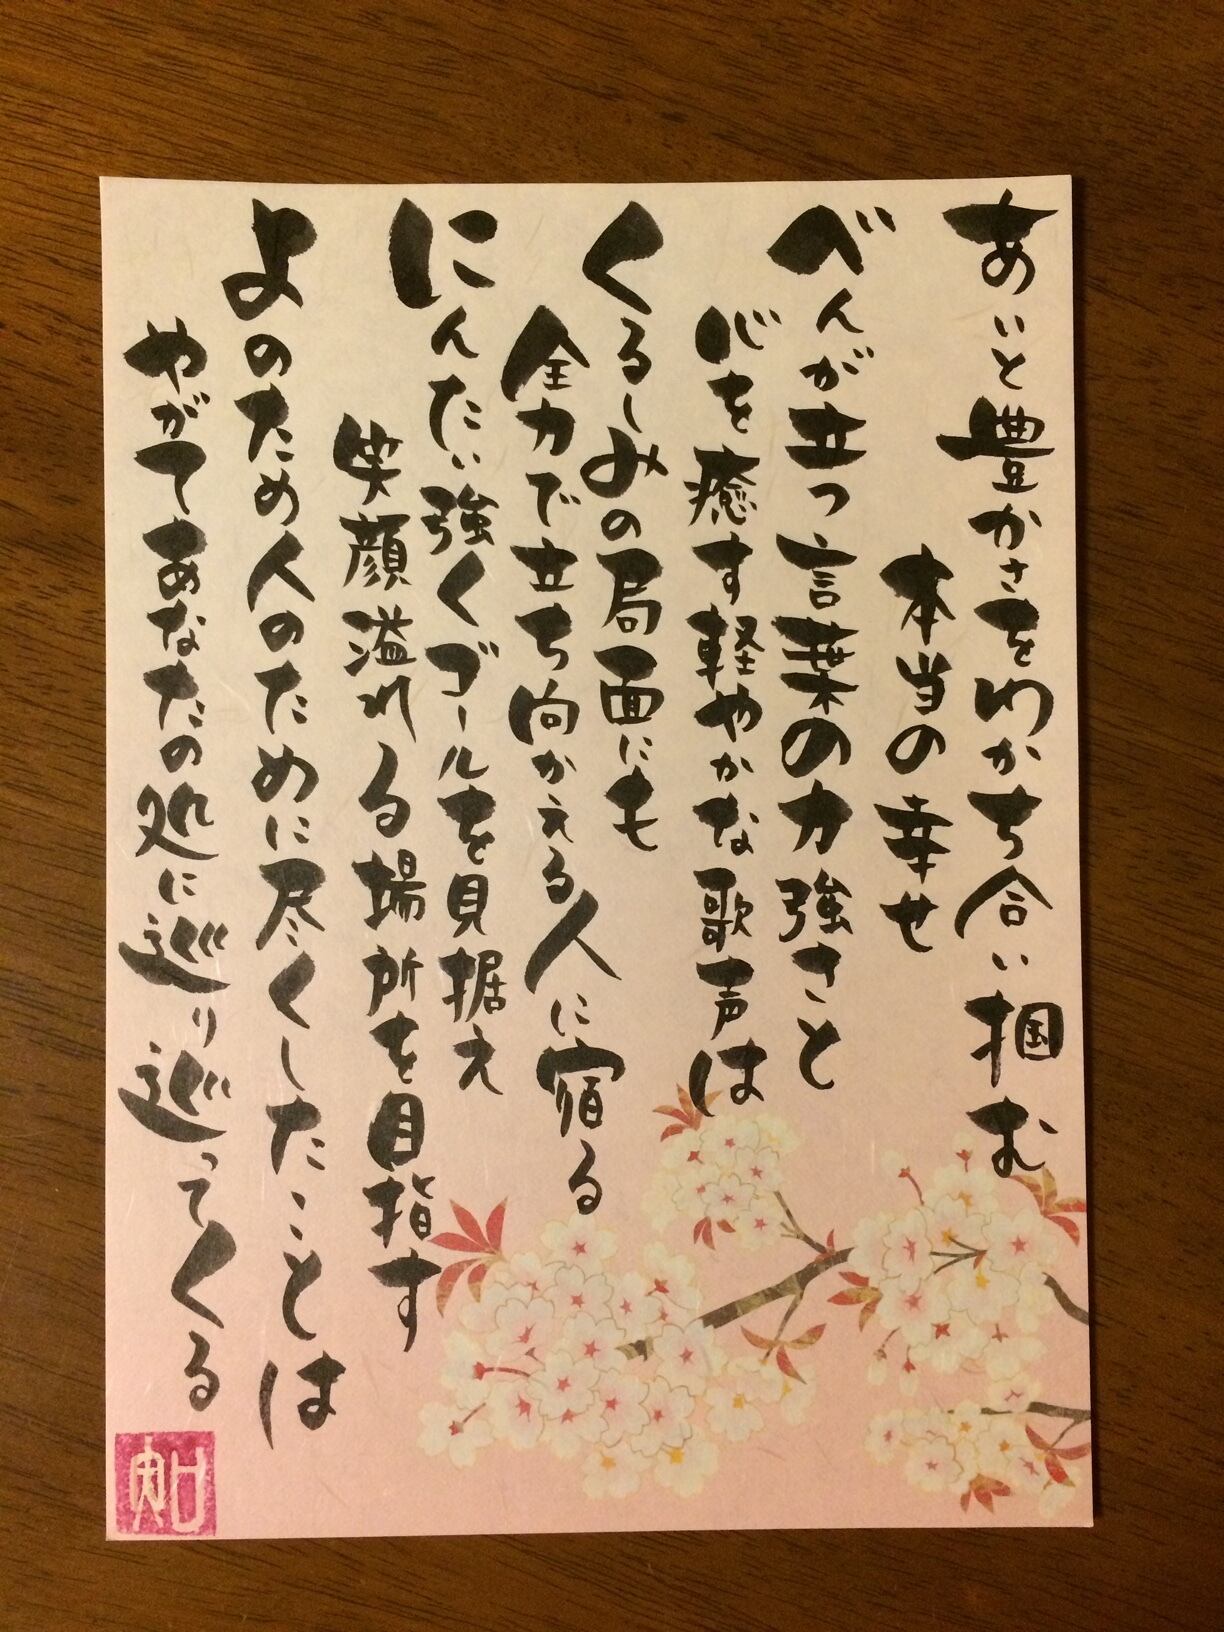 あいと豊かさをわかち合い掴む
本当の幸せ
べんが立つ言葉の力強さと
心を癒す軽やかな歌声は
くるしみの局面にも
全力で立ち向かえる人に宿る
にんたい強くゴールを見据え
笑顔溢れる場所を目指す
よのため人のために尽くしたことは
やがてあなたの処に巡り巡ってくる